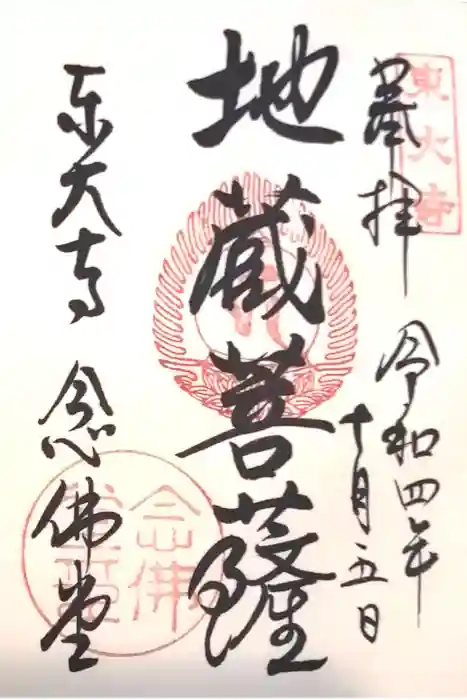 東大寺
奉拝
令和四年
十月五日
地蔵菩薩
東大寺 念佛堂
念佛